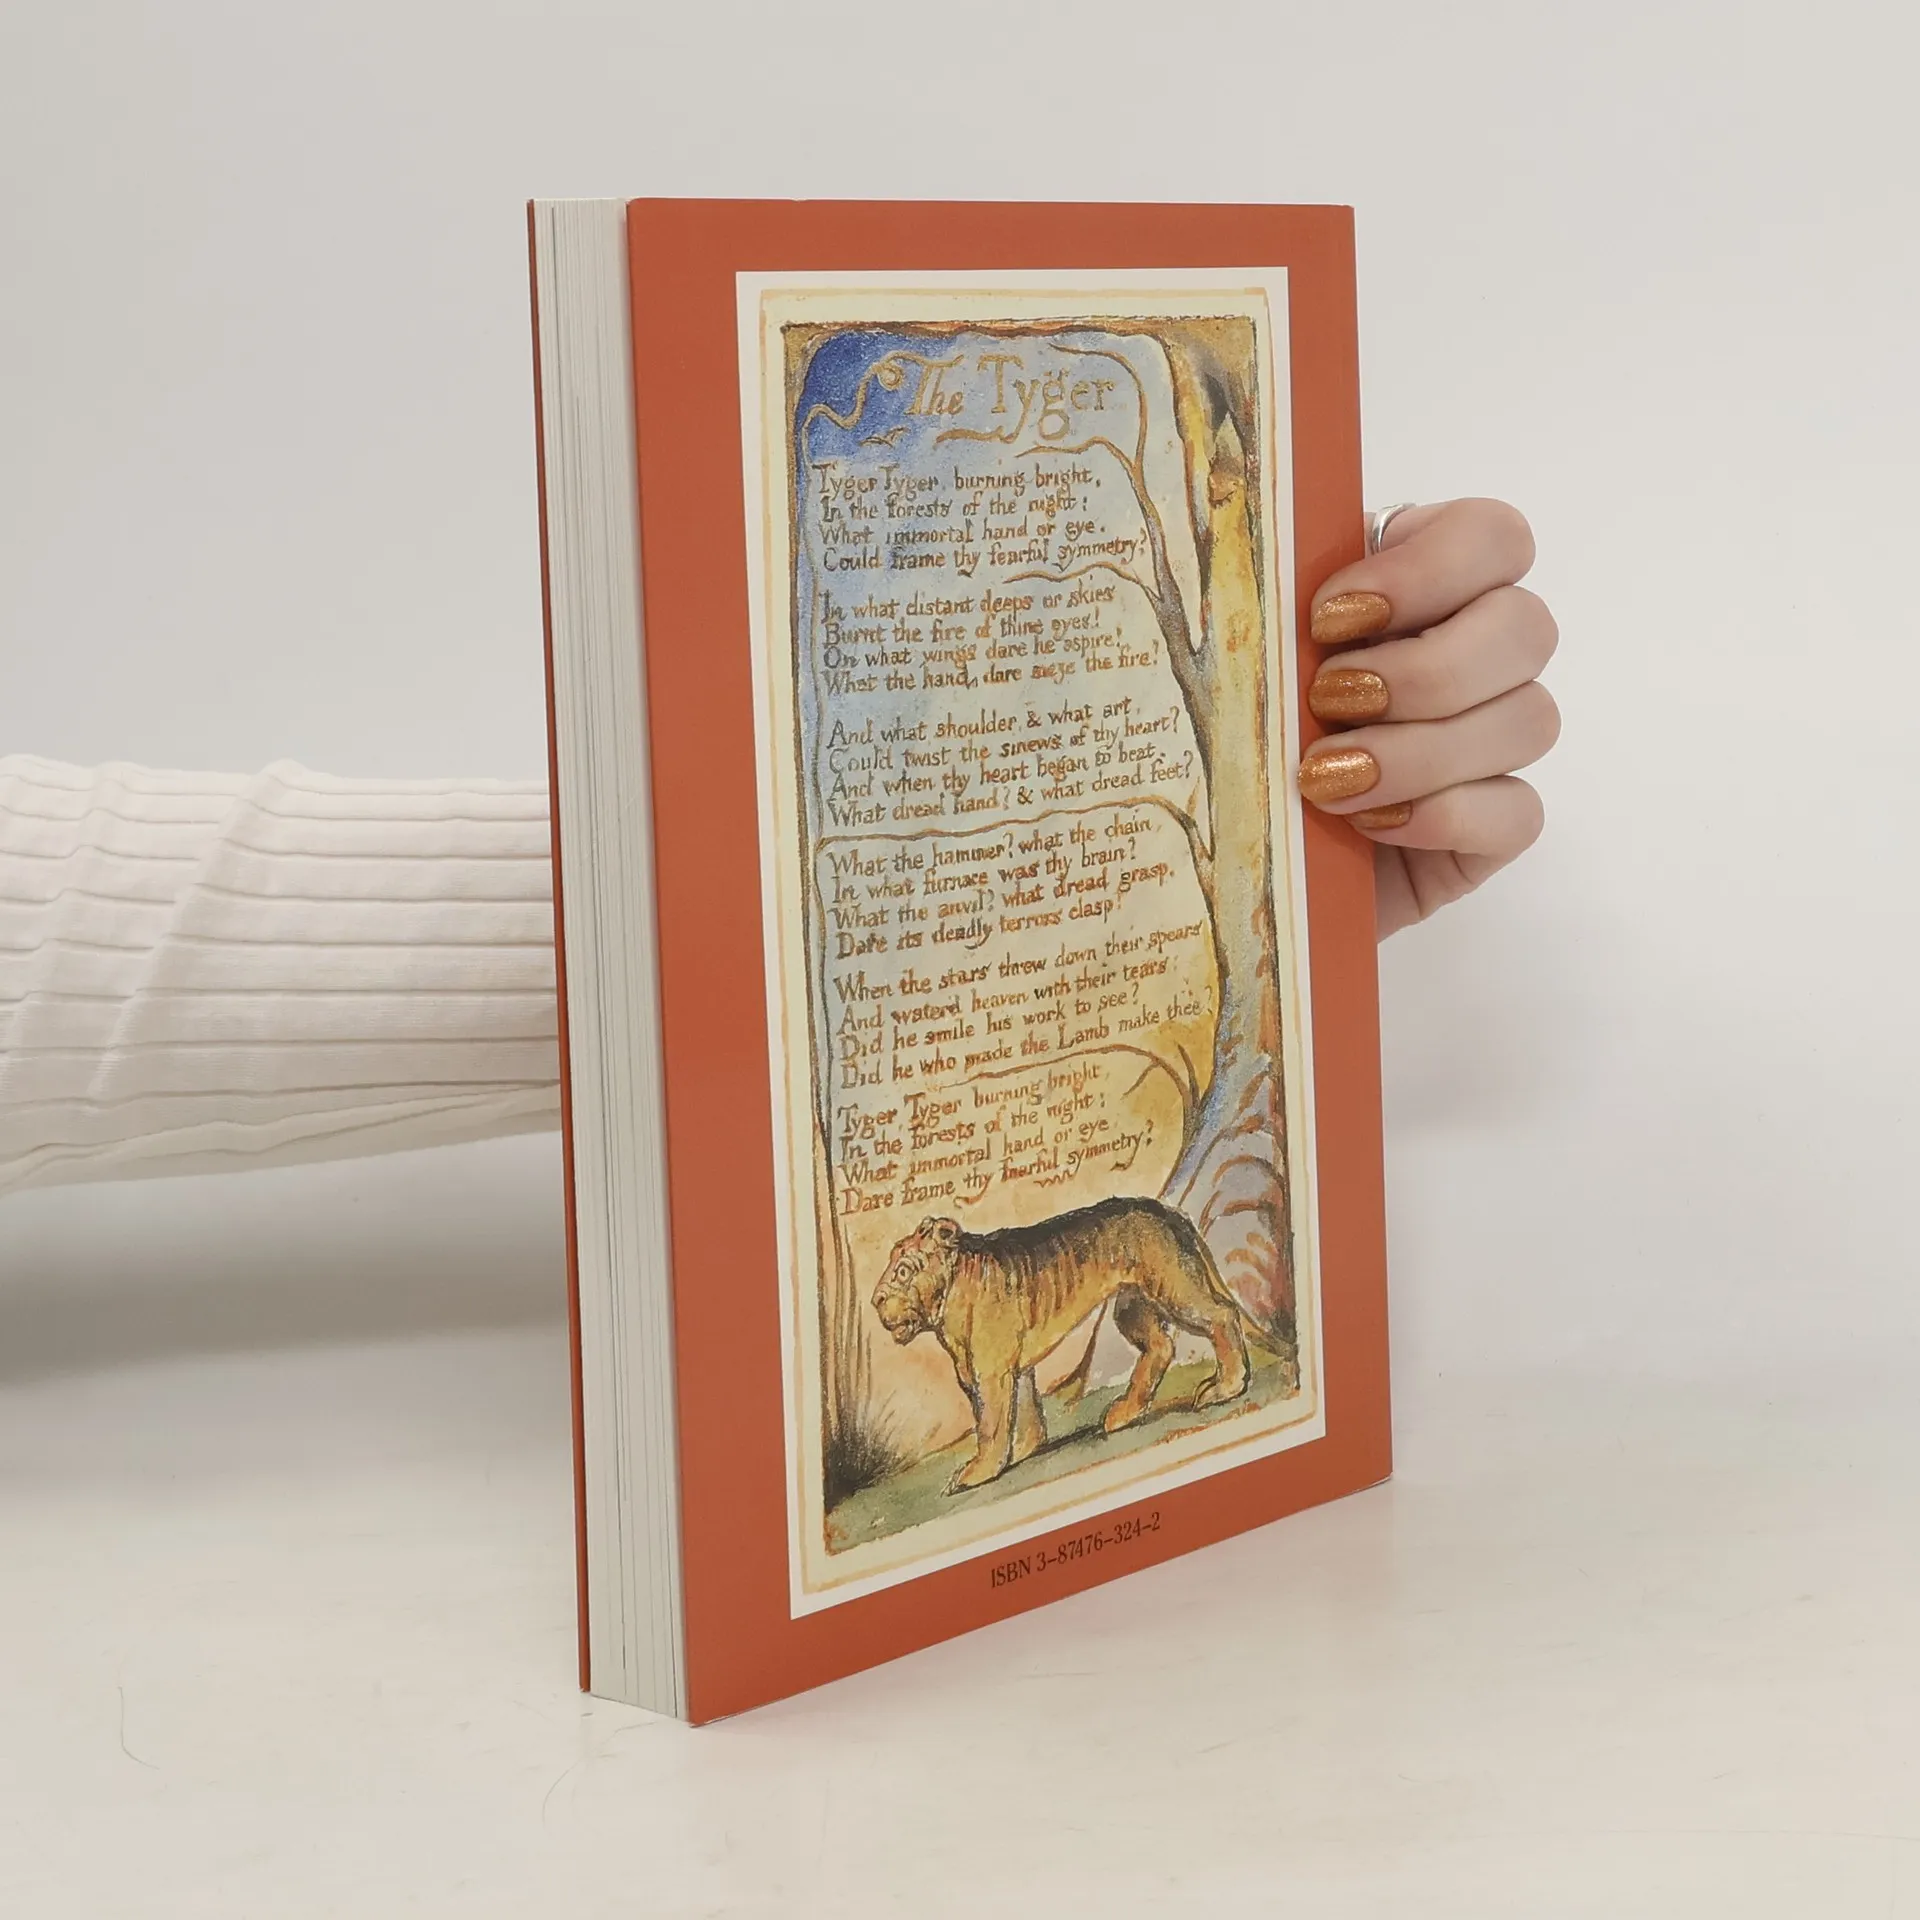 The Tyger
Tyger Tyger, burning bright,
In the forests of the night:
What immortal hand or eye,
Could frame thy fearful symmetry?
In what distant deeps or skies
Burnt the fire of thine eyes!
On what wings dare he aspire!
What the hand, dare sieze the fire?
And what shoulder, & what art,
Could twist the sinews of thy heart?
And when thy heart began to beat,
What dread hand? & what dread feet?
What the hammer? what the chain,
In what furnace was thy brain?
What the anvil? what dread grasp,
Dare its deadly terrors clasp!
When the stars threw down their spears
And water'd heaven with their tears:
Did he smile his work to see?
Did he who made the Lamb make thee?
Tyger, Tyger burning bright,
In the forests of the night:
What immortal hand or eye,
Dare frame thy fearful symmetry?
ISBN 3-87476-324-2